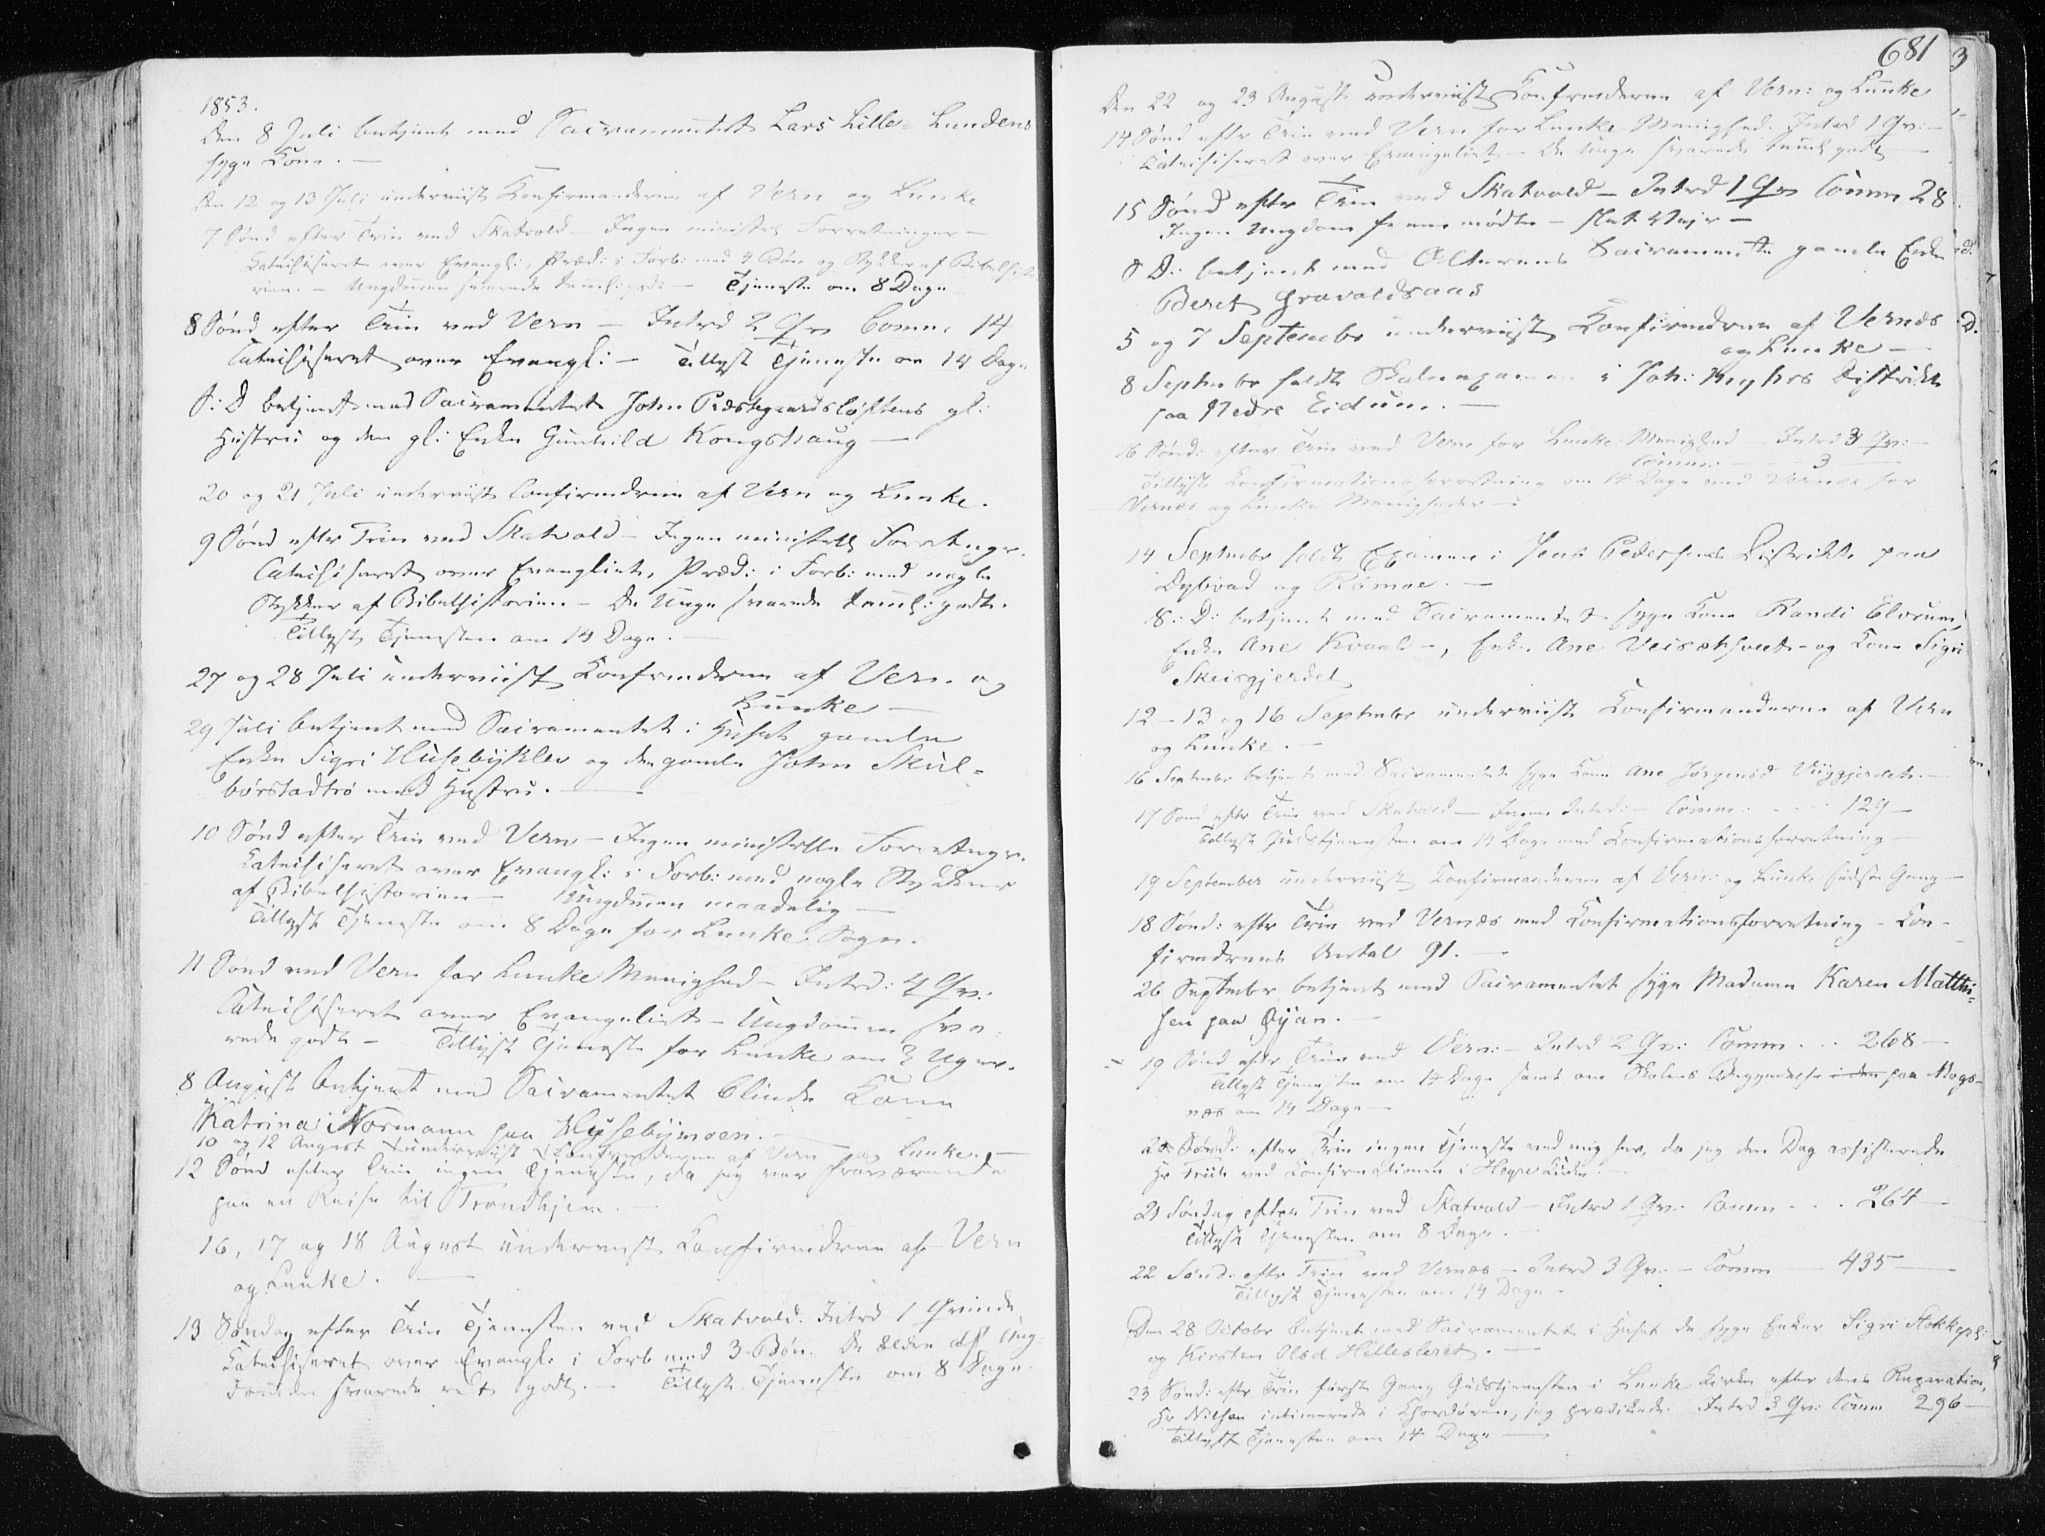 1853.
Den 8 Juli betjent med Sacramentet Lars Lille-Lundens
syge Kone. —
Den 12 og 13 Juli underviist Konfirmanderne af Vern og Lunke
7 Sönd efter Trin ved Skatvold — Ingen minister Forretninger —
Catechiseret over Evangl:, Præd: i Forb: med 4 Bön og Stykker af Bibelhisto
rien. — Ungdommen svarede temml: godt — Tjeneste om 8 Dage
8 Sönd efter Trin ved Vern — Introd 2 Qv. Comm. 14
Catechiseret over Evangl: — Tillyst Tjeneste om 14 Dage
S: D betjent med Sacramentet John Præstegaardsløftens gl:
Hustru og den gl: Enke Gunhild Kongshaug —
20 og 21 Juli underviist Confirmdrne af Vern og Lunke.
9 Sönd efter Trin ved Skatvold — Ingen ministerlle Forretngr.
Catechiseret over Evangliet, Præd: i Forb: med nogle
Stykker af Bibelhistorien — De Unge svarede temml: godt.
Tillyst Tjenesten om 14 Dage. —
27 og 28 Juli underviist Konfirmdrne af Vern. og
Lunke —
29 Juli betjent med Sacramentet i Huset gamle
Enke Sigri Husebÿkler og den gamle John Skul-
börstadtrö med Hustru. —
10 Sönd efter Trin ved Vern — Ingen ministerlle Forretngr.
Catechiseret over Evangl: i Forb: med nogle Stykker
af Bibelhistorien — Ungdmen maadelig —
Tillyst Tjeneste om 8 Dage for Lunke Sogn.
11 Sönd ved Vern for Lunke Menighed — Introd: 4 Qv:
Catechiseret over Evangeliet — Ungdommen sva-
rede godt — Tillyst Tjeneste for Lunke om 3 Uger.
8 August betjent med Sacramentet blinde Kone
Katrina Normann paa Husebÿmoen. —
10 og 12 August underviist Konfirmdrne af Vern og Lunke. —
12 Sönd efter Trin ingen Tjeneste, da jeg var fraværende
paa en Reise til Trondhjem. —
16, 17 og 18 August underviist Konfirmdrne af Vern
og Lunke. —
13 Söndag efter Trin Tjenesten ved Skatvold. Introd 1 Qvinde
Catechiseret over Evangl: i Forb med 3 Bön. De ældre af Ung-
dommen svarede ret godt. — Tillyst Tjeneste om 8 Dage.
681
Den 22 og 23 August underviist Konfirmdrene af Vern: og Lunke
14 Sönd eftr Trin ved Vern for Lunke Menighed. Introd 1 Qv: —
Catechiseret over Evangeliet — De Unge svarede temml godt —
15 Sönd eftr Trin ved Skatvold — Introd 1 Qv Comm 28
Ingen Ungdom fremmödte — slet Vejr —
S D: betjent med Alterens Sacramente gamle Enke
Beret Gravaldsaas
5 og 7 Septembr underviist Konfirmdrne af Vernæs
og Lunke —
8 Septembr holdt Skoleexamen i Joh: Distrikt
paa Nedre Eidum. —
16 Sönd: efter Trin ved Vern for Lunke Menighed — Introd 3 Qv: —
Comm: — 3 —
Tillyst Konfirmationsforretning om 14 Dage ved Vernæs for
Vernæs og Lunke Menigheder —
14 Septembr holdt Examen i Jens Pedersens Distrikt paa
Dybvad og Römoe. —
S: D: betjent med Sacramentet syge Kone Randi Elvrum,
Enke Ane Kvaal —, Enke Ane — og Kone Sigri
Skeisgjerdet
12 — 13 og 16 Septembr underviist Konfirmanderne af Vern
og Lunke. —
16 Septembr betjent med Sacramentet syge Kone Ane Jörgensd —
17 Sönd eftr Trin ved Skatvold — Ingen Introd: — Comm: . . . . 129 —
Tillyst Gudstjenesten om 14 Dage med Konfirmationsforretning —
19 September underviist Konfirmanderne af Vern: og Lunke sidste Gang —
18 Sönd: eftr Trin ved Vernæs med Konfirmationsforretning — Kon-
firmdrnes Antal 91. —
26 September betjent med Sacramentet syge Madame Karen Matthi-
sen paa Øÿan. —
19 Sönd eftr Trin ved Vern: — Introd 2 Qv: Comm . . 268 —
Tillyst Tjenesten om 14 Dage samt om Skolens Begyndelse i den paa Mogs-
næs om 14 Dage —
20 Sönd: efter Trin ingen Tjeneste ved mig her, da jeg den Dag assisterede
Hr ved Konfirmationen i Hegre Kirke —
21 Söndag efter Trin ved Skatvold — Introd 1 Qv: Comm . . . 264 —
Tillyst Tjenesten om 8 Dage. —
22 Sönd: eftr Trin ved Vernæs — Introd 3 Qv: — Comm — 435 —
Tillyst Tjenesten om 14 Dage —
Den 28 Octobr betjent med Sacramentet i Huset de syge Enker Sigri
og Kirsten Olsd. —
23 Sönd: eftr Trin förste Gang Gudstjenesten i Lunke Kirke efter dens Reparation,
Hr Nilsen intimerede i Chordören, jeg prædikede. Introd 3 Qv: Comm 296 —
Tillyst Tjenesten om 14 Dage —